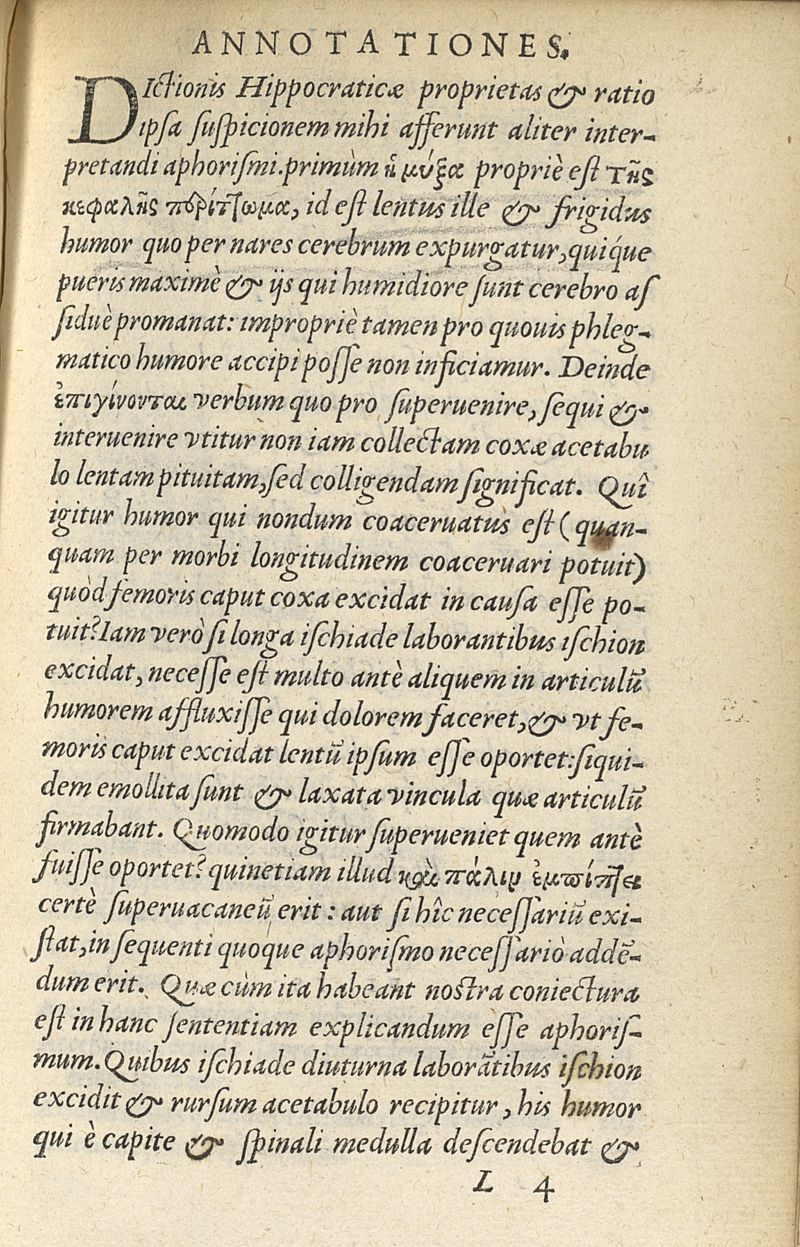 ANNOTATIONES.
DIctionis Hippocraticæ proprietas & ratio
ipsa suspicionem mihi afferunt aliter inter-
pretandi aphorismi. primùm ἡ μύξα propriè est τῆς
κεφαλῆς περίττωμα, id est lentus ille & frigidus
humor quo per nares cerebrum expurgatur, quíque
pueris maximè & ijs qui humidiore sunt cerebro as
siduè promanat: impropriè tamen pro quouis phleg-
matico humore accipi posse non inficiamur. Deinde
ἐπιγίνονται verbum quo pro superuenire, sequi &
interuenire vtitur non iam collectam coxæ acetabu
lo lentam pituitam, sed colligendam significat. Quî
igitur humor qui nondum coaceruatus est (quan-
quam per morbi longitudinem coaceruari potuit)
quòd femoris caput coxa excidat in causa esse po-
tuit? Iam verò si longa ischiade laborantibus ischion
excidat, necesse est multo antè aliquem in articulū
humorem affluxisse qui dolorem faceret, & vt fe-
moris caput excidat lentū ipsum esse oportet: siqui-
dem emollita sunt & laxata vincula quæ articulū
firmabant. Quomodo igitur superueniet quem antè
fuisse oportet? quinetiam illud καὶ πάλιν ἐμπίπτει
certè superuacaneū erit: aut si hîc necessariū exi-
stat, in sequenti quoque aphorismo necessariò addē-
dum erit. Quæ cùm ita habeant nostra coniectura
est in hanc sententiam explicandum esse aphoris-
mum. Quibus ischiade diuturna laborātibus ischion
excidit & rursum acetabulo recipitur, his humor
qui è capite & spinali medulla descendebat &
L 4